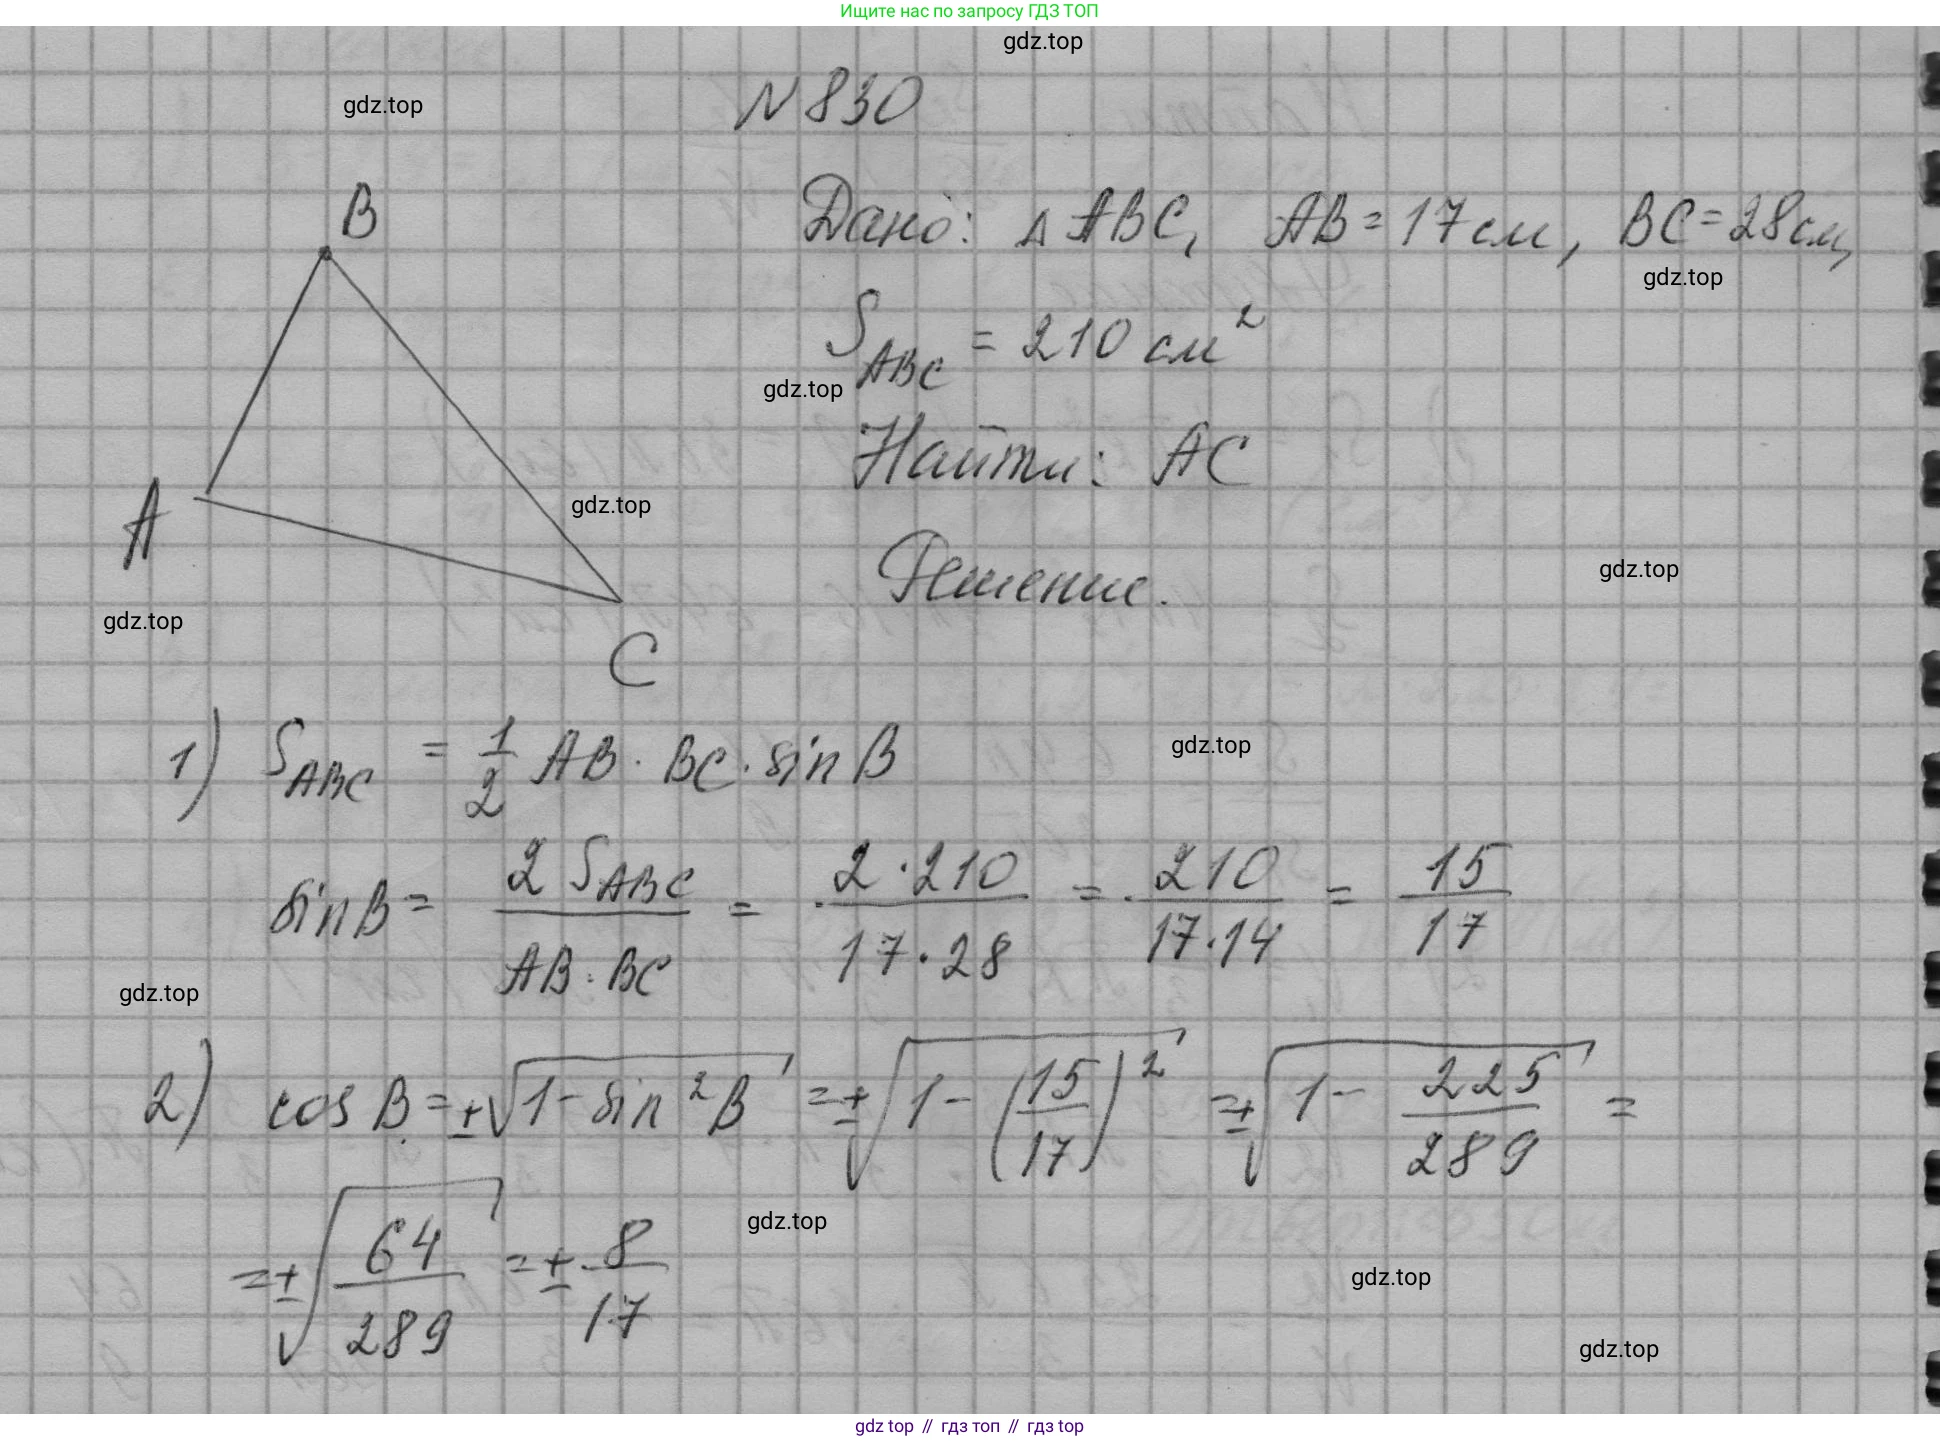 Ищите нас по запросу ГДЗ ТОП
gdz.top
gdz.top
N 830
B
Дано: △ ABC, AB = 17 см, BC = 28 см,
gdz.top
S_ABC = 210 см²
gdz.top
Найти: AC
A
gdz.top
Решение.
gdz.top
gdz.top
C
1) S_ABC = 1/2 AB · BC · sin B
gdz.top
sin B = 2 S_ABC / AB · BC = 2 · 210 / 17 · 28 = 210 / 17 · 14 = 15/17
gdz.top
2) cos B = ±√(1 - sin² B) = ±√(1 - (15/17)²) = ±√(1 - 225/289) =
= ±√(64/289) = ± 8/17
gdz.top
gdz.top
gdz.top
gdz top // гдз топ // гдз top